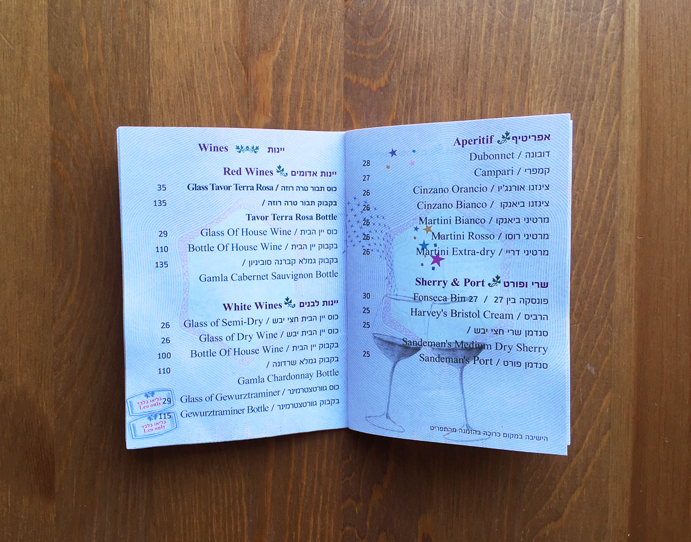 Wines יינות
Red Wines יינות אדומים
35 Glass Tavor Terra Rosa / כוס תבור טרה רוזה
135 בקבוק תבור טרה רוזה /
Tavor Terra Rosa Bottle
29 Glass Of House Wine / כוס יין הבית
110 Bottle Of House Wine / בקבוק יין הבית
135 בקבוק גמלא קברנה סוביניון /
Gamla Cabernet Sauvignon Bottle
White Wines יינות לבנים
26 Glass of Semi-Dry / כוס יין הבית חצי יבש
26 Glass of Dry Wine / כוס יין הבית יבש
100 Bottle Of House Wine / בקבוק יין הבית
110 בקבוק גמלא שרדונה /
Gamla Chardonnay Bottle
29 Glass of Gewurztraminer / כוס גוורטצטרמינר
115 Gewurztraminer Bottle / בקבוק גוורטצטרמינר
בליאו בלבד
Leo only
בליאו בלבד
Leo only
Aperitif אפריטיף
28 Dubonnet / דובונה
27 Campari / קמפרי
26 Cinzano Orancio / צינזנו אורנג'יו
26 Cinzano Bianco / צינזנו ביאנקו
26 Martini Bianco / מרטיני ביאנקו
26 Martini Rosso / מרטיני רוסו
26 Martini Extra-dry / מרטיני דריי
Sherry & Port שרי ופורט
30 Fonseca Bin 27 / פונסקה בין 27
25 Harvey's Bristol Cream / הרביס
25 סנדמן שרי חצי יבש /
Sandeman's Medium Dry Sherry
25 Sandeman's Port / סנדמן פורט
הישיבה במקום כרוכה בהזמנה מהתפריט